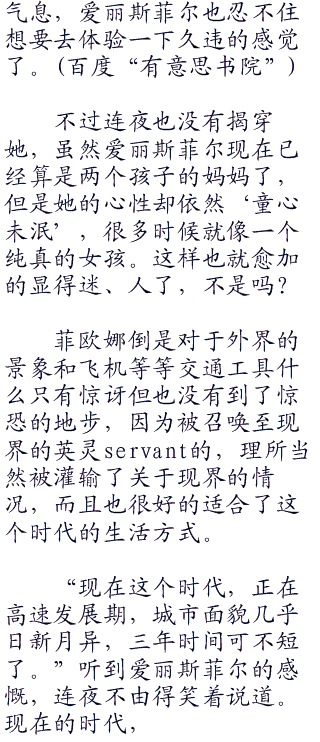 气息，爱丽斯菲尔也忍不住
想要去体验一下久违的感觉
了。(百度“有意思书院”)
不过连夜也没有揭穿
她，虽然爱丽斯菲尔现在已
经算是两个孩子的妈妈了，
但是她的心性却依然‘童心
未泯’，很多时候就像一个
纯真的女孩。这样也就愈加
的显得迷、人了，不是吗？
菲欧娜倒是对于外界的
景象和飞机等等交通工具什
么只有惊讶但也没有到了惊
恐的地步，因为被召唤至现
界的英灵servant的，理所当
然被灌输了关于现界的情
况，而且也很好的适合了这
个时代的生活方式。
“现在这个时代，正在
高速发展期，城市面貌几乎
日新月异，三年时间可不短
了。”听到爱丽斯菲尔的感
慨，连夜不由得笑着说道。
现在的时代，